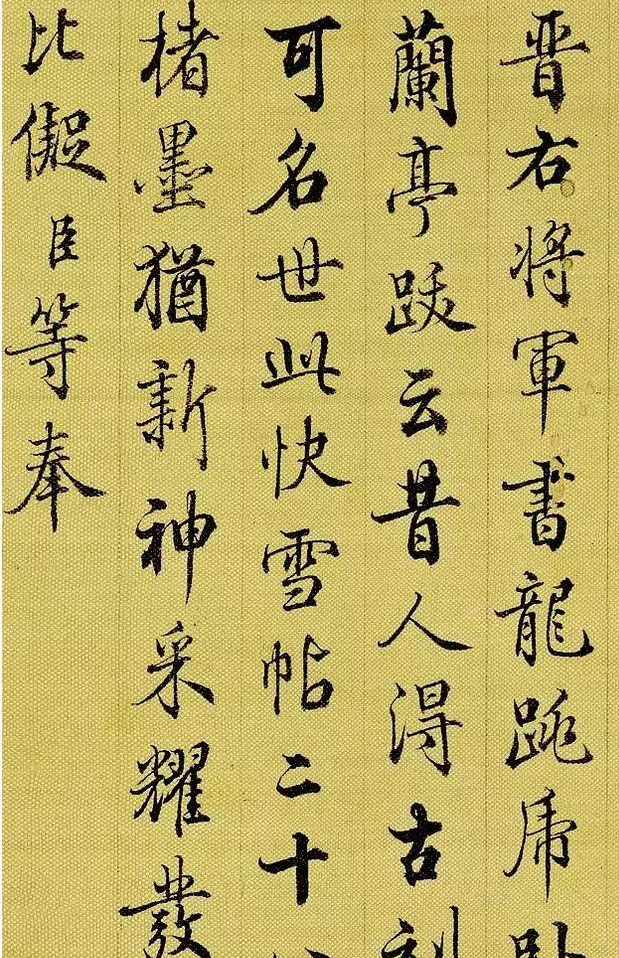 晋右將軍書龍跳虎臥
蘭亭跋云昔人得古刻
可名世此快雪帖二十
楮墨猶新神采耀發
比儗臣等奉